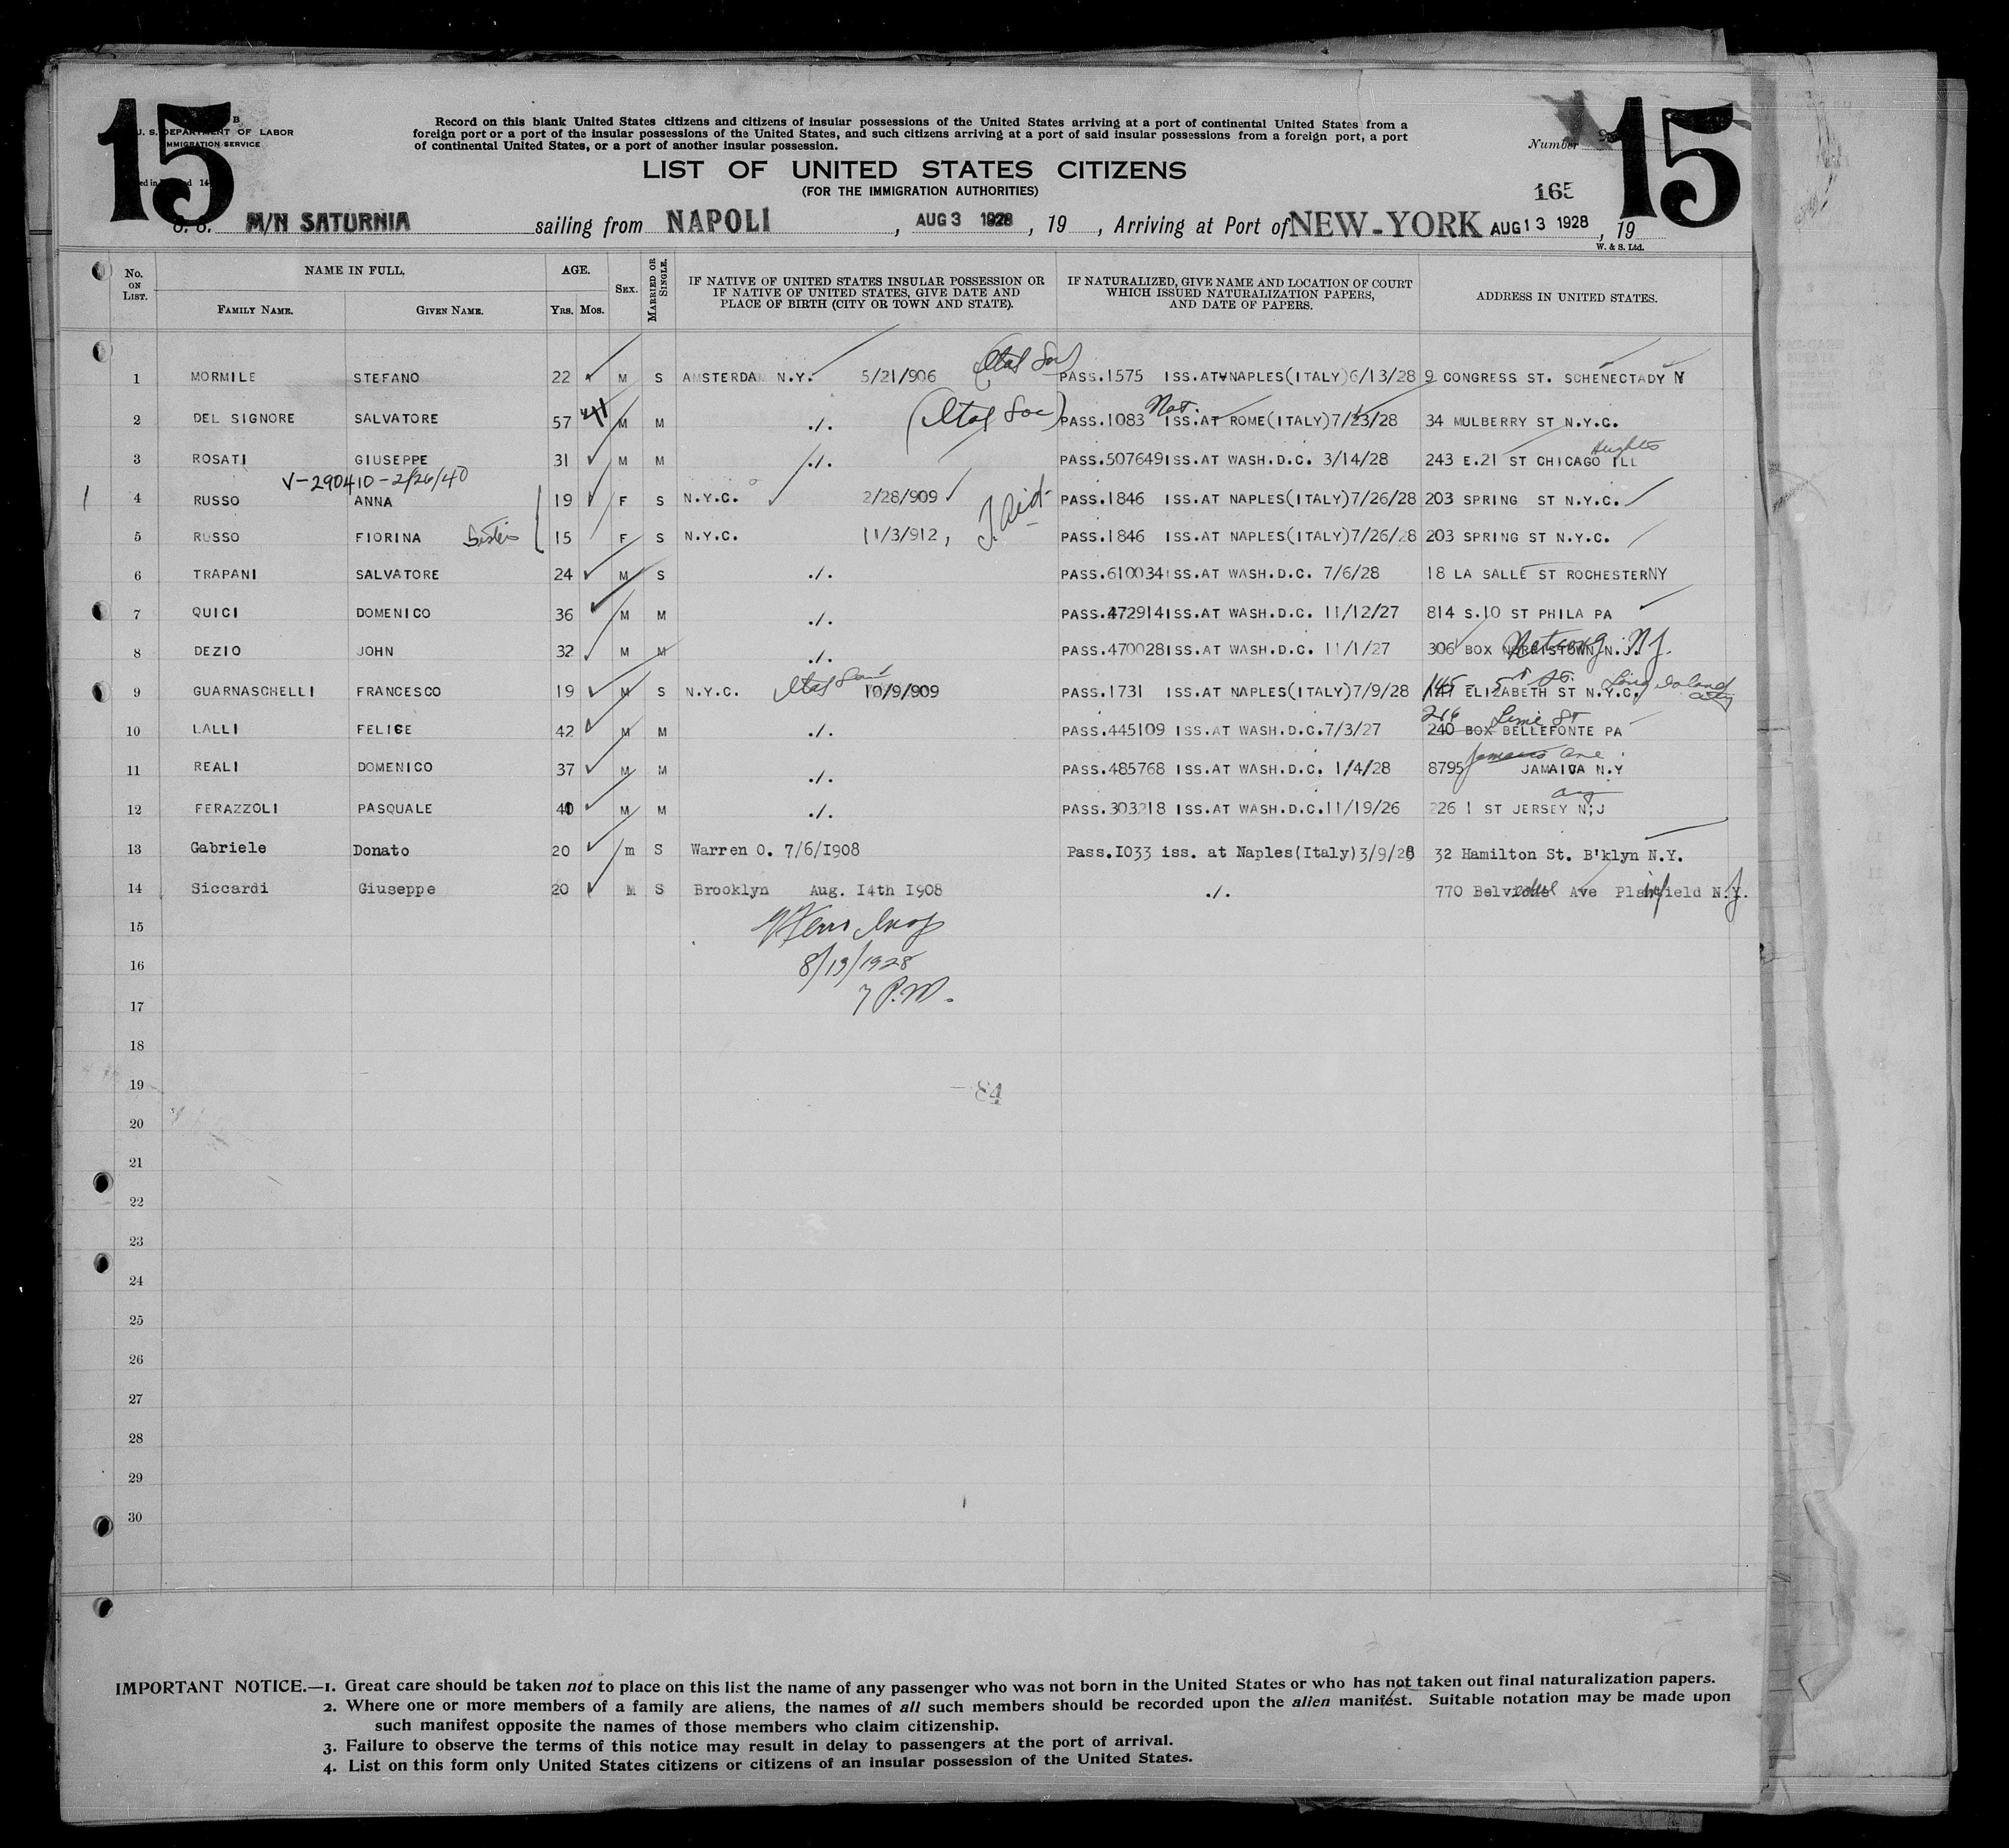 15
B
U. S. DEPARTMENT OF LABOR
IMMIGRATION SERVICE
Record on this blank United States citizens and citizens of insular possessions of the United States arriving at a port of continental United States from a
foreign port or a port of the insular possessions of the United States, and such citizens arriving at a port of said insular possessions from a foreign port, a port
of continental United States, or a port of another insular possession.
Number
15
LIST OF UNITED STATES CITIZENS
(FOR THE IMMIGRATION AUTHORITIES)
165
S. S. M/N SATURNIA sailing from NAPOLI, AUG 3 1928, 19 , Arriving at Port of NEW-YORK AUG 13 1928, 19
W. & S. Ltd.
No. ON LIST. NAME IN FULL. AGE. SEX. MARRIED OR SINGLE. IF NATIVE OF UNITED STATES INSULAR POSSESSION OR IF NATIVE OF UNITED STATES, GIVE DATE AND PLACE OF BIRTH (CITY OR TOWN AND STATE). IF NATURALIZED, GIVE NAME AND LOCATION OF COURT WHICH ISSUED NATURALIZATION PAPERS, AND DATE OF PAPERS. ADDRESS IN UNITED STATES.
FAMILY NAME. GIVEN NAME. YRS. MOS.
(Ital Soc)
1 MORMILE STEFANO 22 M S AMSTERDAM N.Y. 5/21/906 PASS.1575 ISS.AT NAPLES(ITALY)6/13/28 9 CONGRESS ST. SCHENECTADY N
2 DEL SIGNORE SALVATORE 57 41 M M ./. (Ital Soc) PASS.1083 Nat. ISS.AT ROME(ITALY)7/23/28 34 MULBERRY ST N.Y.C.
3 ROSATI GIUSEPPE 31 M M ./. PASS.507649 ISS.AT WASH.D.C. 3/14/28 243 E.21 ST CHICAGO Heights ILL
V-290410-2/26/40
4 RUSSO ANNA 19 F S N.Y.C. 2/28/909 PASS.1846 ISS.AT NAPLES(ITALY)7/26/28 203 SPRING ST N.Y.C.
5 RUSSO FIORINA Sister 15 F S N.Y.C. 11/3/912, PASS.1846 ISS.AT NAPLES(ITALY)7/26/28 203 SPRING ST N.Y.C.
6 TRAPANI SALVATORE 24 M S ./. PASS.610034 ISS.AT WASH.D.C. 7/6/28 18 LA SALLE ST ROCHESTER NY
7 QUICI DOMENICO 36 M M ./. PASS.472914 ISS.AT WASH.D.C. 11/12/27 814 S.10 ST PHILA PA
8 DEZIO JOHN 32 M M ./. PASS.470028 ISS.AT WASH.D.C. 11/1/27 306 BOX NORRISTOWN N.J. Netcong N.J.
9 GUARNASCHELLI FRANCESCO 19 M S N.Y.C. 10/9/909 PASS.1731 ISS.AT NAPLES(ITALY)7/9/28 ELIZABETH ST N.Y.C. 145 - 5 St. Long Island City
10 LALLI FELICE 42 M M ./. PASS.445109 ISS.AT WASH.D.C.7/3/27 240 BOX BELLEFONTE PA 216 Lime St
11 REALI DOMENICO 37 M M ./. PASS.485768 ISS.AT WASH.D.C. 1/4/28 8795 Jamaica Ave JAMAICA N.Y
12 FERAZZOLI PASQUALE 40 M M ./. PASS.303218 ISS.AT WASH.D.C.11/19/26 226 1 ST JERSEY N;J
13 Gabriele Donato 20 m S Warren O. 7/6/1908 Pass.I033 iss. at Naples(Italy)3/9/28 32 Hamilton St. B'klyn N.Y.
14 Siccardi Giuseppe 20 M S Brooklyn Aug. I4th I908 ./. 770 Belvidere Ave Plainfield N.J.
15
16 8/13/1928
17 7 P.M.
18
19 84
20
21
22
23
24
25
26
27
28
29
30
IMPORTANT NOTICE.—1. Great care should be taken not to place on this list the name of any passenger who was not born in the United States or who has not taken out final naturalization papers.
2. Where one or more members of a family are aliens, the names of all such members should be recorded upon the alien manifest. Suitable notation may be made upon
such manifest opposite the names of those members who claim citizenship.
3. Failure to observe the terms of this notice may result in delay to passengers at the port of arrival.
4. List on this form only United States citizens or citizens of an insular possession of the United States.